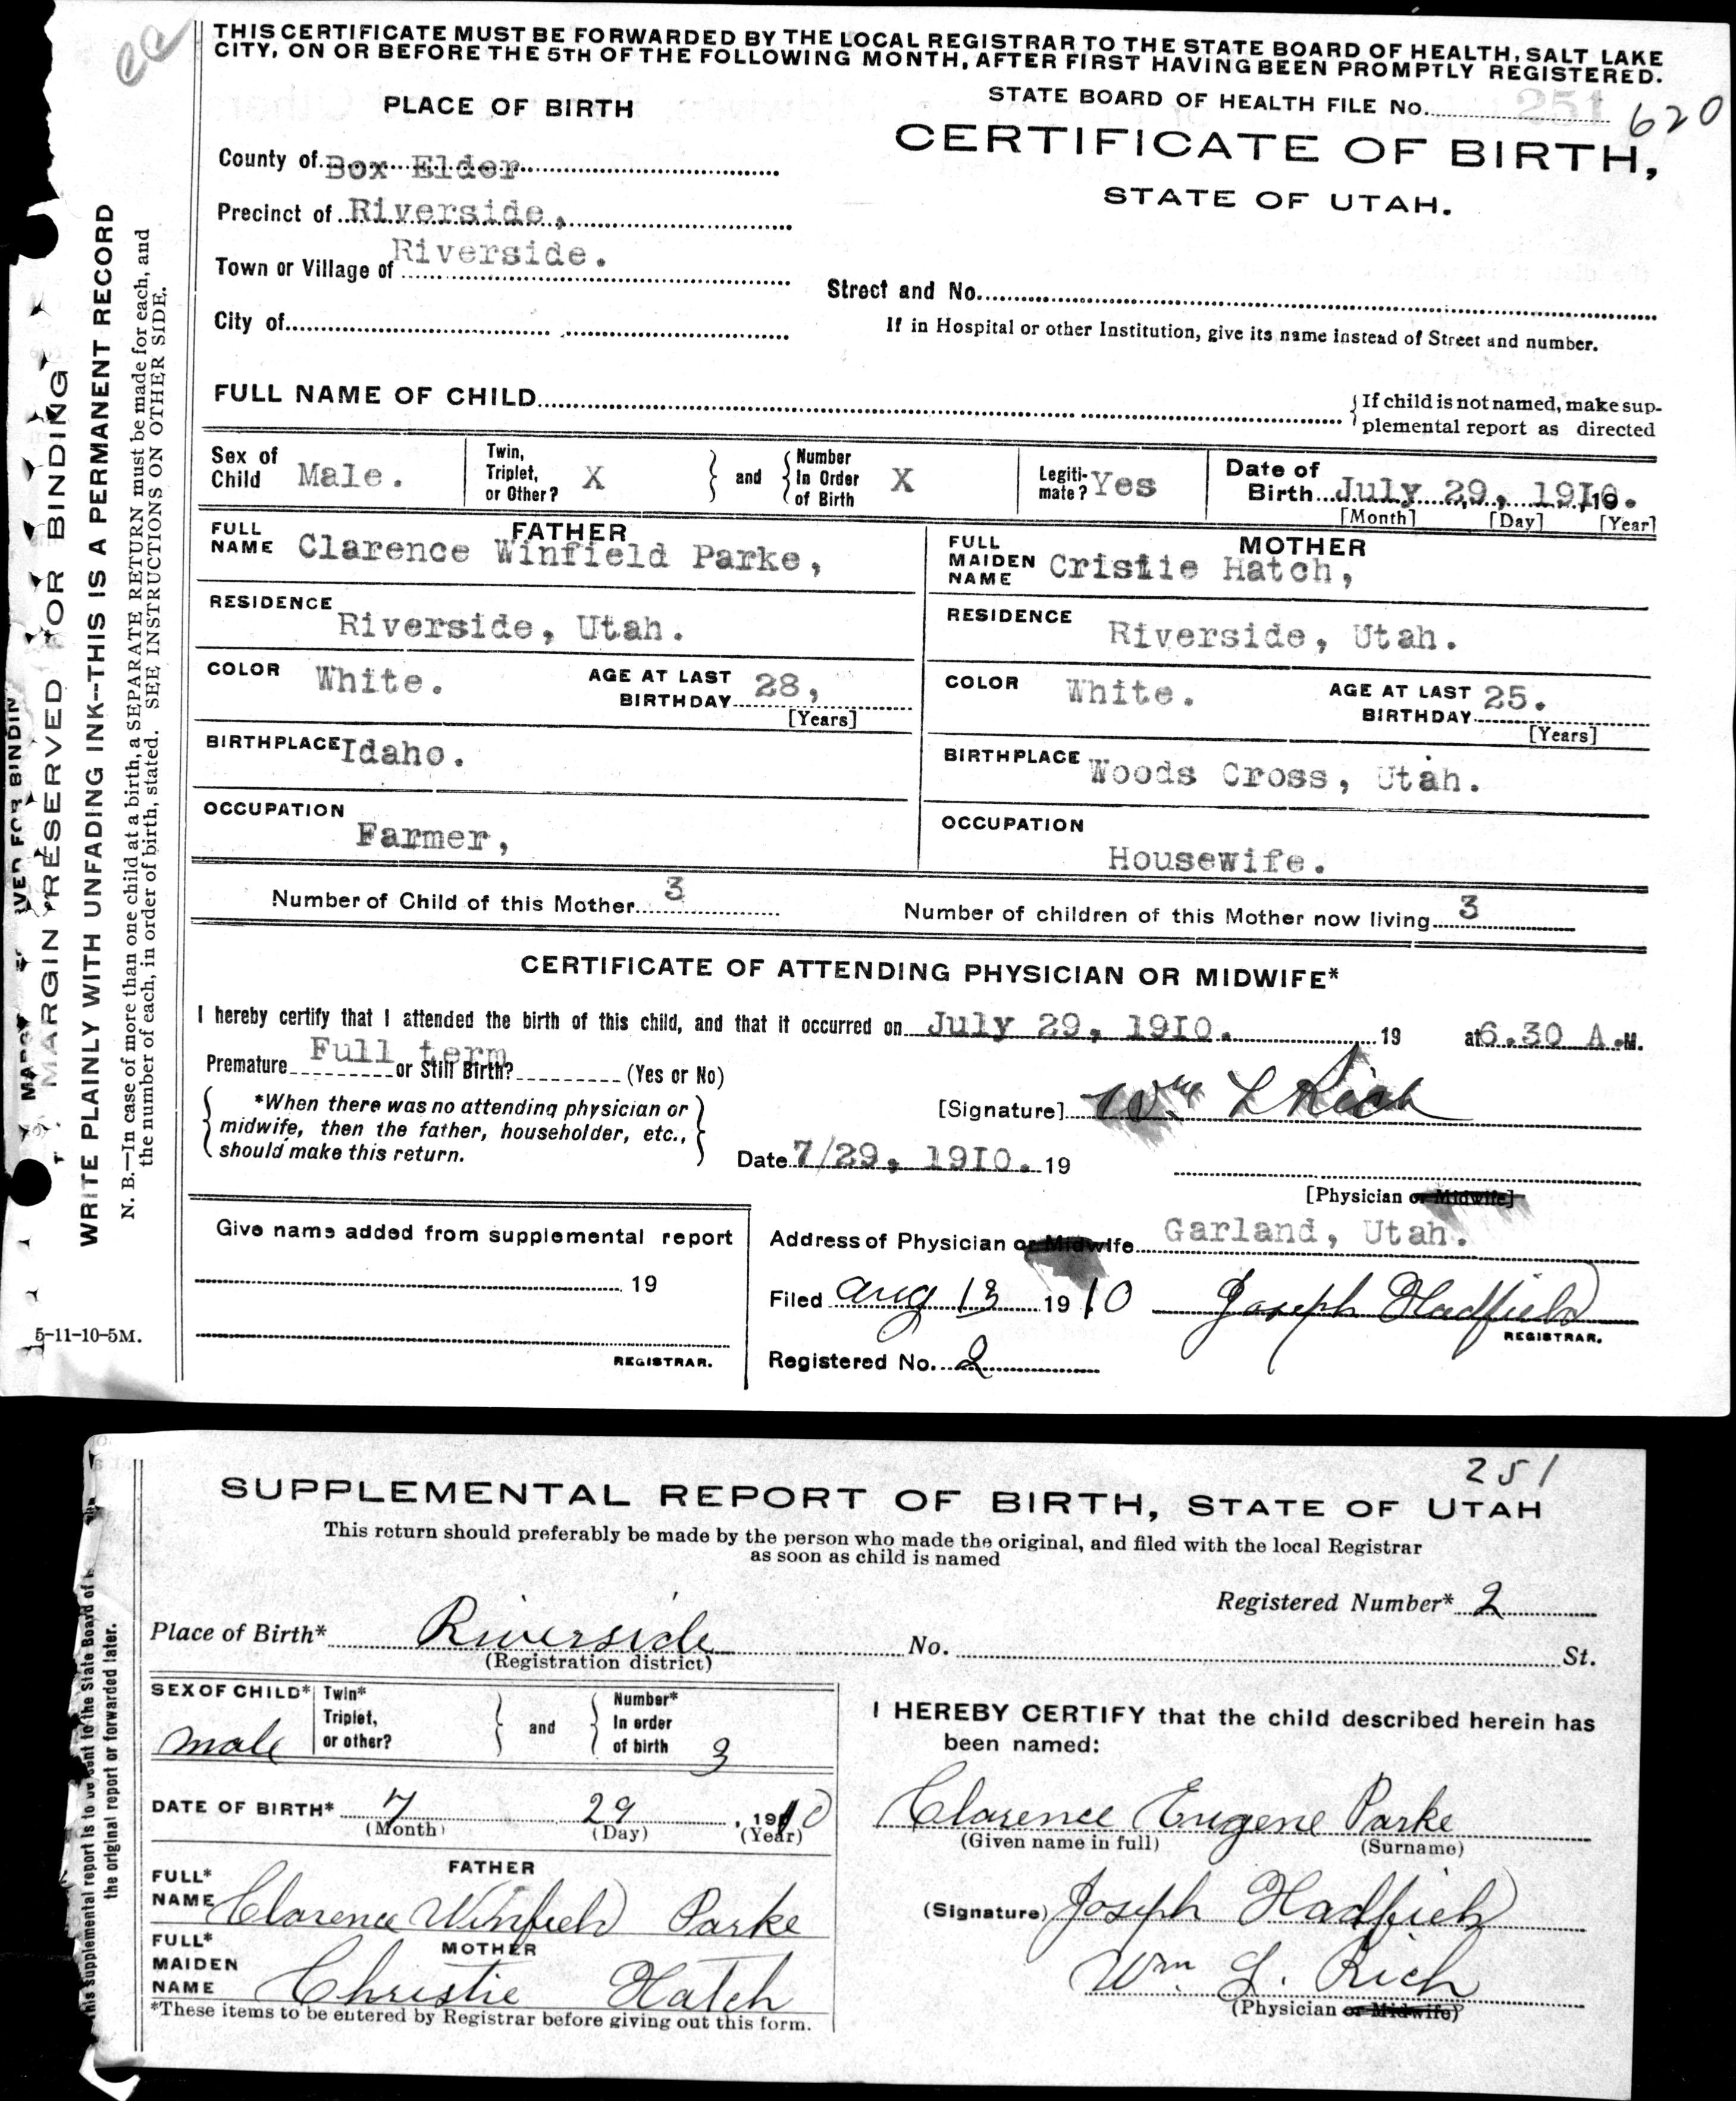 THIS CERTIFICATE MUST BE FORWARDED BY THE LOCAL REGISTRAR TO THE STATE BOARD OF HEALTH, SALT LAKE
CITY, ON OR BEFORE THE 5TH OF THE FOLLOWING MONTH, AFTER FIRST HAVING BEEN PROMPTLY REGISTERED.
PLACE OF BIRTH
STATE BOARD OF HEALTH FILE No. 251 620
CERTIFICATE OF BIRTH,
STATE OF UTAH.
County of Box Elder
Precinct of Riverside,
Town or Village of Riverside.
Street and No.
City of
If in Hospital or other Institution, give its name instead of Street and number.
FULL NAME OF CHILD
If child is not named, make sup-
plemental report as directed
Sex of Child Male.
Twin, Triplet, or Other? X
and
Number In Order of Birth X
Legiti-mate? Yes
Date of Birth July 29, 1910.
[Month] [Day] [Year]
FATHER
FULL NAME Clarence Winfield Parke,
MOTHER
FULL MAIDEN NAME Cristie Hatch,
RESIDENCE Riverside, Utah.
RESIDENCE Riverside, Utah.
COLOR White. AGE AT LAST BIRTHDAY 28, [Years]
COLOR White. AGE AT LAST BIRTHDAY 25. [Years]
BIRTHPLACE Idaho.
BIRTHPLACE Woods Cross, Utah.
OCCUPATION Farmer,
OCCUPATION Housewife.
Number of Child of this Mother 3
Number of children of this Mother now living 3
CERTIFICATE OF ATTENDING PHYSICIAN OR MIDWIFE*
I hereby certify that I attended the birth of this child, and that it occurred on July 29, 1910. 19 at 6.30 A.M.
Premature Full term or Still Birth? (Yes or No)
*When there was no attending physician or
midwife, then the father, householder, etc.,
should make this return.
[Signature] Wm L Rich
Date 7/29, 1910. 19
[Physician or Midwife]
Give name added from supplemental report
19
REGISTRAR.
Address of Physician or Midwife Garland, Utah.
Filed Aug 13 1910 Joseph Hadfield
REGISTRAR.
Registered No. 2
MARGIN RESERVED FOR BINDING
WRITE PLAINLY WITH UNFADING INK--THIS IS A PERMANENT RECORD
N. B.—In case of more than one child at a birth, a SEPARATE RETURN must be made for each, and
the number of each, in order of birth, stated. SEE INSTRUCTIONS ON OTHER SIDE.
5-11-10-5M.
251
SUPPLEMENTAL REPORT OF BIRTH, STATE OF UTAH
This return should preferably be made by the person who made the original, and filed with the local Registrar
as soon as child is named
Registered Number* 2
Place of Birth* Riverside No. St.
(Registration district)
SEX OF CHILD* male
Twin* Triplet, or other?
and
Number* In order of birth 3
DATE OF BIRTH* 7 29, 1910
(Month) (Day) (Year)
FATHER
FULL* NAME Clarence Winfield Parke
MOTHER
FULL* MAIDEN NAME Christie Hatch
*These items to be entered by Registrar before giving out this form.
I HEREBY CERTIFY that the child described herein has
been named:
Clarence Eugene Parke
(Given name in full) (Surname)
(Signature) Joseph Hadfield
Wm. L. Rich
(Physician or Midwife)
the original report or forwarded later.